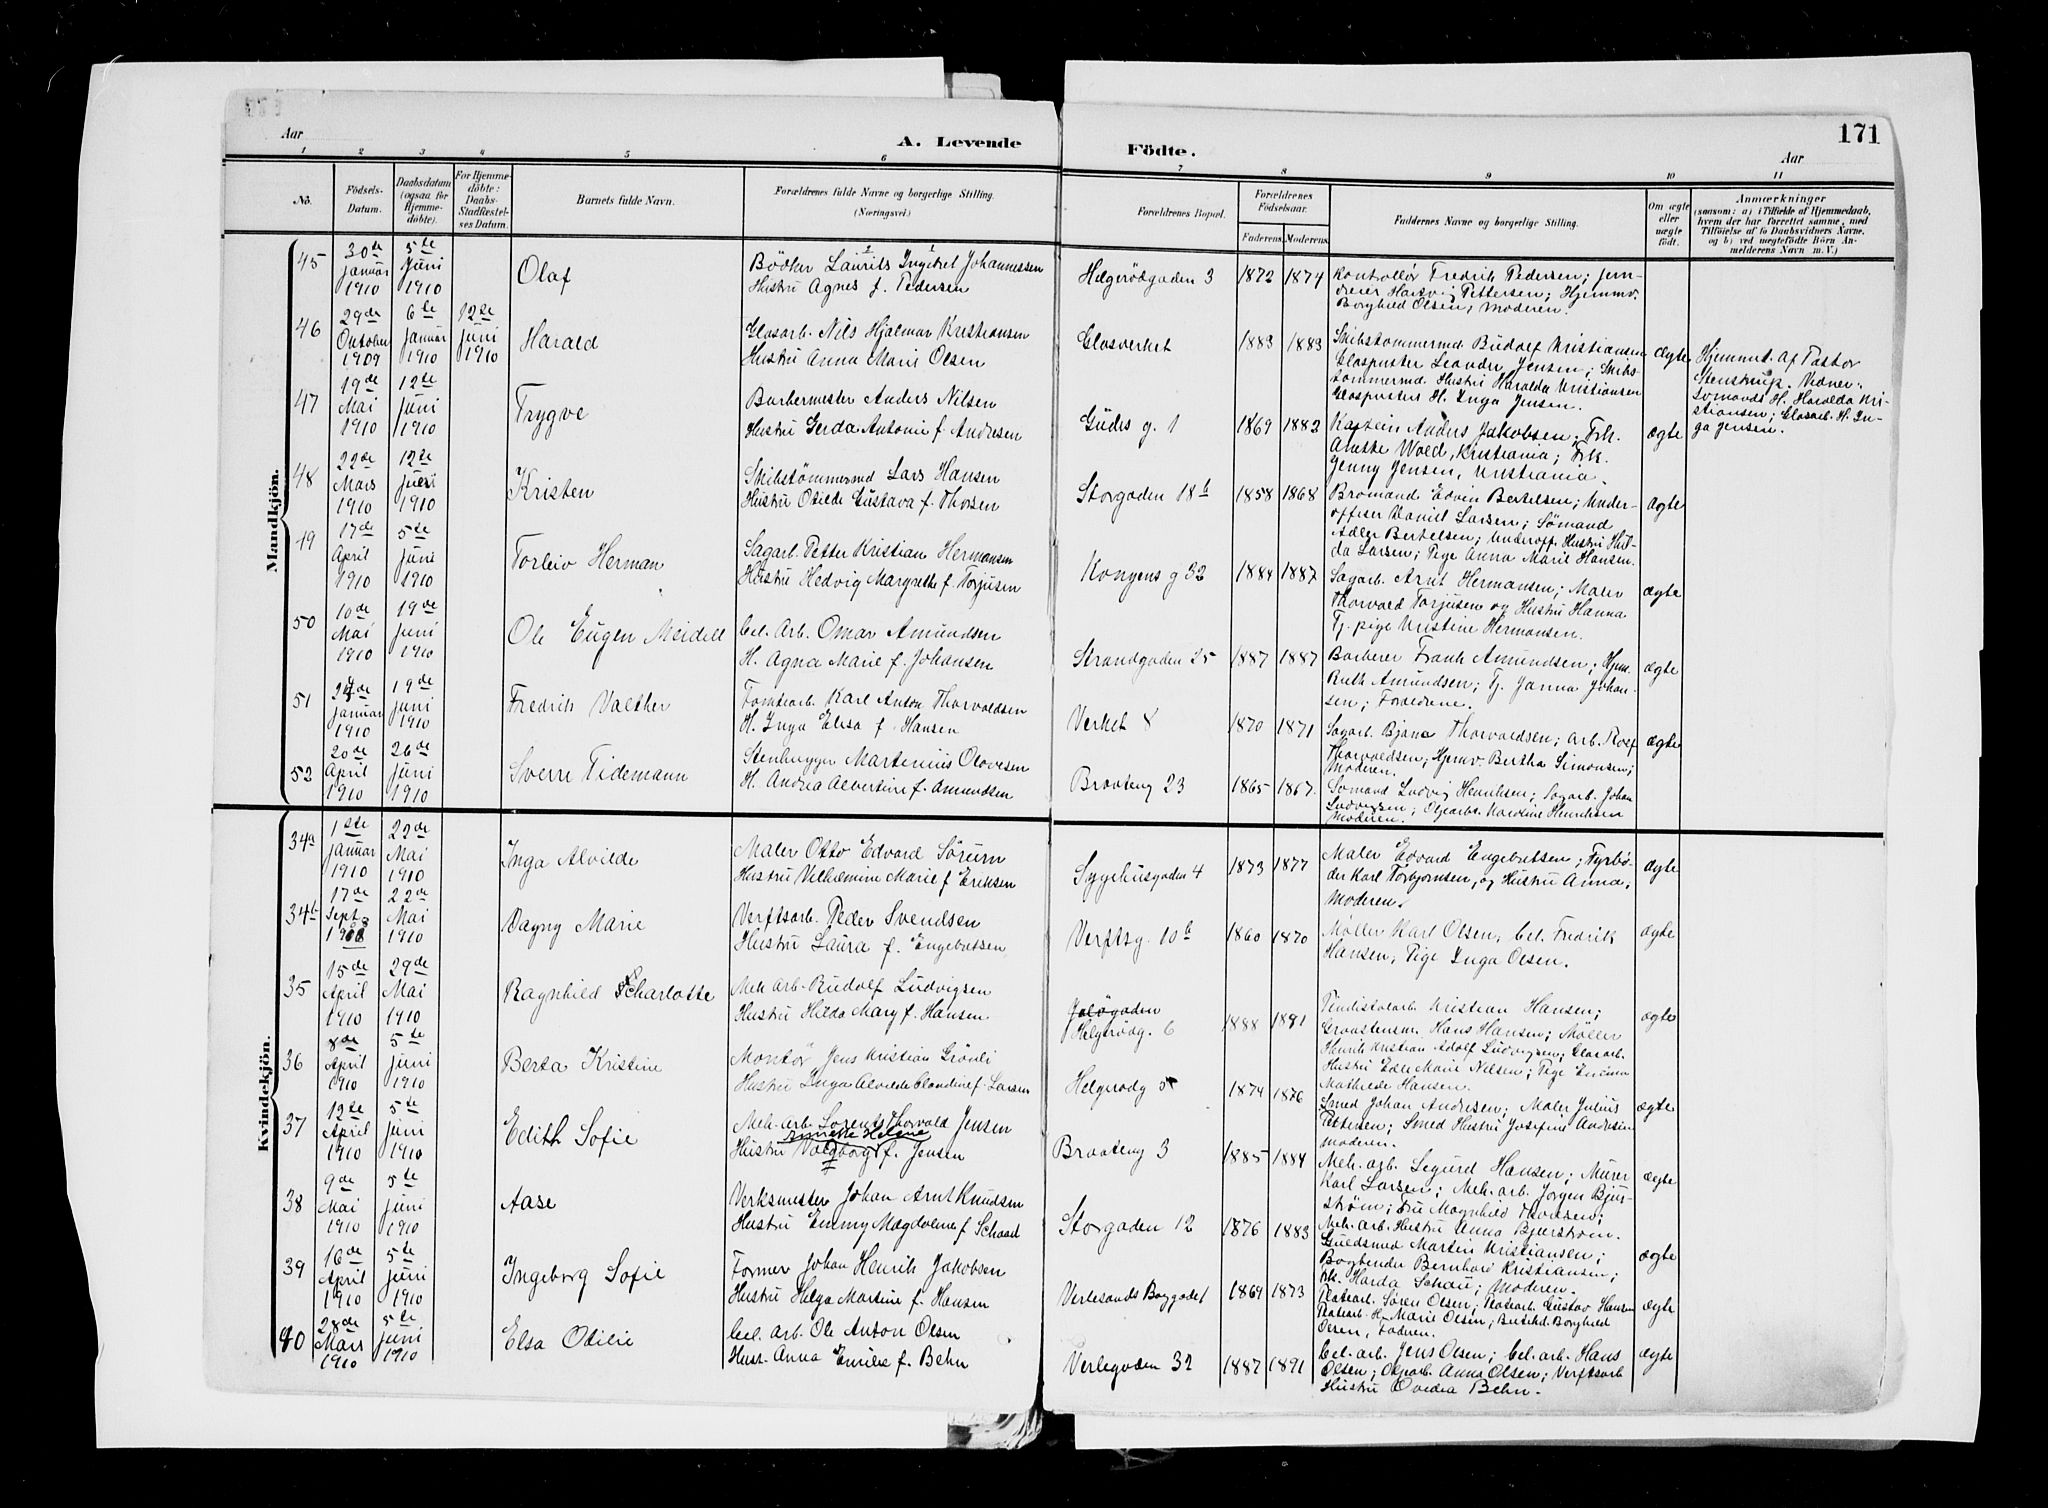 171
Aar
A. Levende Födte.
Aar
1 2 3 4 5 6 7 8 9 10 11
No.
Födsels-Datum.
Daabsdatum (ogsaa for Hjemmedöbte).
For Hjemmedöbte: Daabs-Stadfæstelses Datum.
Barnets fulde Navn.
Forældrenes fulde Navne og borgerlige Stilling. (Næringsvei.)
Forældrenes Bopæl.
Forældrenes Födselsaar.
Faderens. Moderens.
Faddernes Navne og borgerlige Stilling.
Om ægte eller uægte födt.
Anmærkninger
(saasom: a) i Tilfælde af Hjemmedaab,
hvem der har forrettet samme, med
Tilföielse af to Daabsvidners Navne,
og b) ved uægtefödte Börn Anmelderens
Navn m. V.)
Mandkjön.
45 30de Januar 1910 5te Juni 1910 Olaf
Bödker Laurits Ingebret Johannessen
Hustru Agnes f. Pedersen
Helgerödgaden 3 1872 1874
Kontrollör Fredrik Pedersen; Jern-
dreier Hartvig Pettersen; Hjemmv.
Borghild Olsen, Moderen.
46 29de Oktober 1909 6te Januar 1910 12te Juni 1910 Harald
Glasarb. Nils Hjalmar Kristiansen
Hustru Anna Marie Olsen
Glasverket 1883 1883
Skibstömmermd Rudolf Kristiansen
Glaspuster Leander Jensen; Skibs-
tömmermd Hustru Haralda Kristiansen
Glaspusters H. Inga Jensen.
ægte
Hjemmd. af Pastor
Stenstrup. Vidner:
Sömands H. Haralda Kri-
stiansen; Glasarb. H. In-
ga Jensen.
47 19de Mai 1910 12te Juni 1910 Trygve
Barbermester Anders Nilsen
Hustru Gerda Antonie f. Andresen
Gudes g. 1 1869 1882
Kaptein Anders Jakobsen; Frk.
Anette Wold, Kristiania; Frk.
Jenny Jensen, Kristiania.
ægte
48 22de Mars 1910 12te Juni 1910 Kristen
Skibstömmermd Lars Hansen
Hustru Otilde Gustava f. Thorsen
Storgaden 18b 1858 1868
Bromand Edven Bertelsen; Under-
officer Daniel Larsen; Sömand
Adler Bertelsen; Underoff. Hustru Hul-
da Larsen; Pige Anna Marie Hansen.
ægte
49 17de April 1910 5te Juni 1910 Torleiv Herman
Sagarb. Petter Kristian Hermansen
Hustru Hedvig Margrethe f. Torjusen
Kongens g 32 1884 1887
Sagarb. Arnt Hermansen; Maler
Thorvald Torjusen og Hustru Hanna
Tj. pige Kristine Hermansen.
ægte
50 10de Mai 1910 19de Juni 1910 Ole Eugen Meidell
Cel. Arb. Omar Amundsen
H. Agna Marie f. Johansen
Strandgaden 25 1887 1887
Barberer Frank Amundsen; Hjem.
Ruth Amundsen; Tj. Janna Johan-
sen; Forældrene.
ægte
51 24de Januar 1910 19de Juni 1910 Fredrik Valther
Tomtearb. Karl Anton Thorvaldsen
H. Inga Elisa f. Hansen
Verket 8 1870 1871
Sagarb. Bjarne Thorvaldsen; Arb. Rolf
Thorvaldsen; Hjemv. Bertha Simonsen;
Moderen.
ægte
52 20de April 1910 26de Juni 1910 Sverre Tidemann
Stenhugger Martinius Olavesen
H. Andrea Alvertine f. Amundsen
Braateng 23 1865 1867.
Sömand Ludvig Henriksen; Sagarb. Johan
Ludvigsen; Oljearbs. Karoline Henriksen
Moderen.
Kvindekjön.
34a 1ste Januar 1910 22de Mai 1910 Inga Alvilde
Maler Otto Edvard Sörum
Hustru Vilhelmine Marie f Eriksen
Sygehusgaden 4 1873 1877
Maler Edvard Engebretsen; Fyrbö-
der Karl Torbjörnsen, og Hustru Anna,
Moderen.
ægte
34b 17de Sept. 1908 22de Mai 1910 Dagny Marie
Verftsarb. Peder Svendsen
Hustru Laura f. Engebretsen
Verftsg. 10b 1860 1870
Möller Karl Olsen, Cel. Fredrik
Hansen, Pige Inga Olsen.
ægte
35 15de April 1910 29de Mai 1910 Ragnhild Charlotte
Mek Arb. Rudolf Ludvigsen
Hustru Hilda Mary f. Hansen
Jelögaden
Helgerödg. 6 1888 1891
Kristian Hansen;
Graastensm. Hans Hansen; Möller
Henrik Kristian Adolf Ludvigsen; Glasarb.
Hustru Edle Marie Nilsen; Pige Emma
Mathilde Hansen.
ægte
36 8de April 1910 5te Juni 1910 Berta Kristine
Montör Jens Kristian Grönli
Hustru Inga Alvilde Blandine f. Larsen
Helgerödg 5 1874 1876
Smed Johan Andresen; Maler Julius
Pettersen; Smed Hustru Josefine Andresen
Moderen.
ægte
37 12te April 1910 5te Juni 1910 Edith Sofie
Mek. Arb. Lorents Thorvald Jensen
Annette Helene
Hustru Valborg f. Jensen
Braateng 3 1885 1884
Mek. arb. Sigurd Hansen; Murer
Karl Larsen; Mek. arb. Jörgen Bjur-
ström; Fru Magnhild Thorsen;
Mek. arb. Hustru Anna Bjurström.
ægte
38 9de Mai 1910 5te Juni 1910 Aase
Verksmester Johan Arnt Knudsen
Hustru Emmy Magdalene f Schaad
Storgaden 12 1876 1883
Guldsmed Martin Kristiansen;
Bogbinder Bernhard Kristiansen;
Frk. Harda Schau; Moderen.
ægte
39 16de April 1910 5te Juni 1910 Ingeborg Sofie
Former Johan Henrik Jakobsen
Hustru Helga Martine f. Hansen
Værlesands Baggade 1 1869 1873
Platearb. Sören Olsen; Platearb. Gustav Hansen
Platearb. H. Marie Olsen; Butikd. Borghild
Olsen, Faderen.
ægte
40 28de Mars 1910 5te Juni 1910 Elsa Otilie
Cel. Arb. Ole Anton Olsen
Hust. Anna Emilie f. Behn
Værlegaden 32 1887 1891
Cel. arb. Jens Olsen; Cel. arb. Hans
Olsen; Oljearb. Anna Olsen; Verftsarb
Hustru Ovidia Behn.
ægte